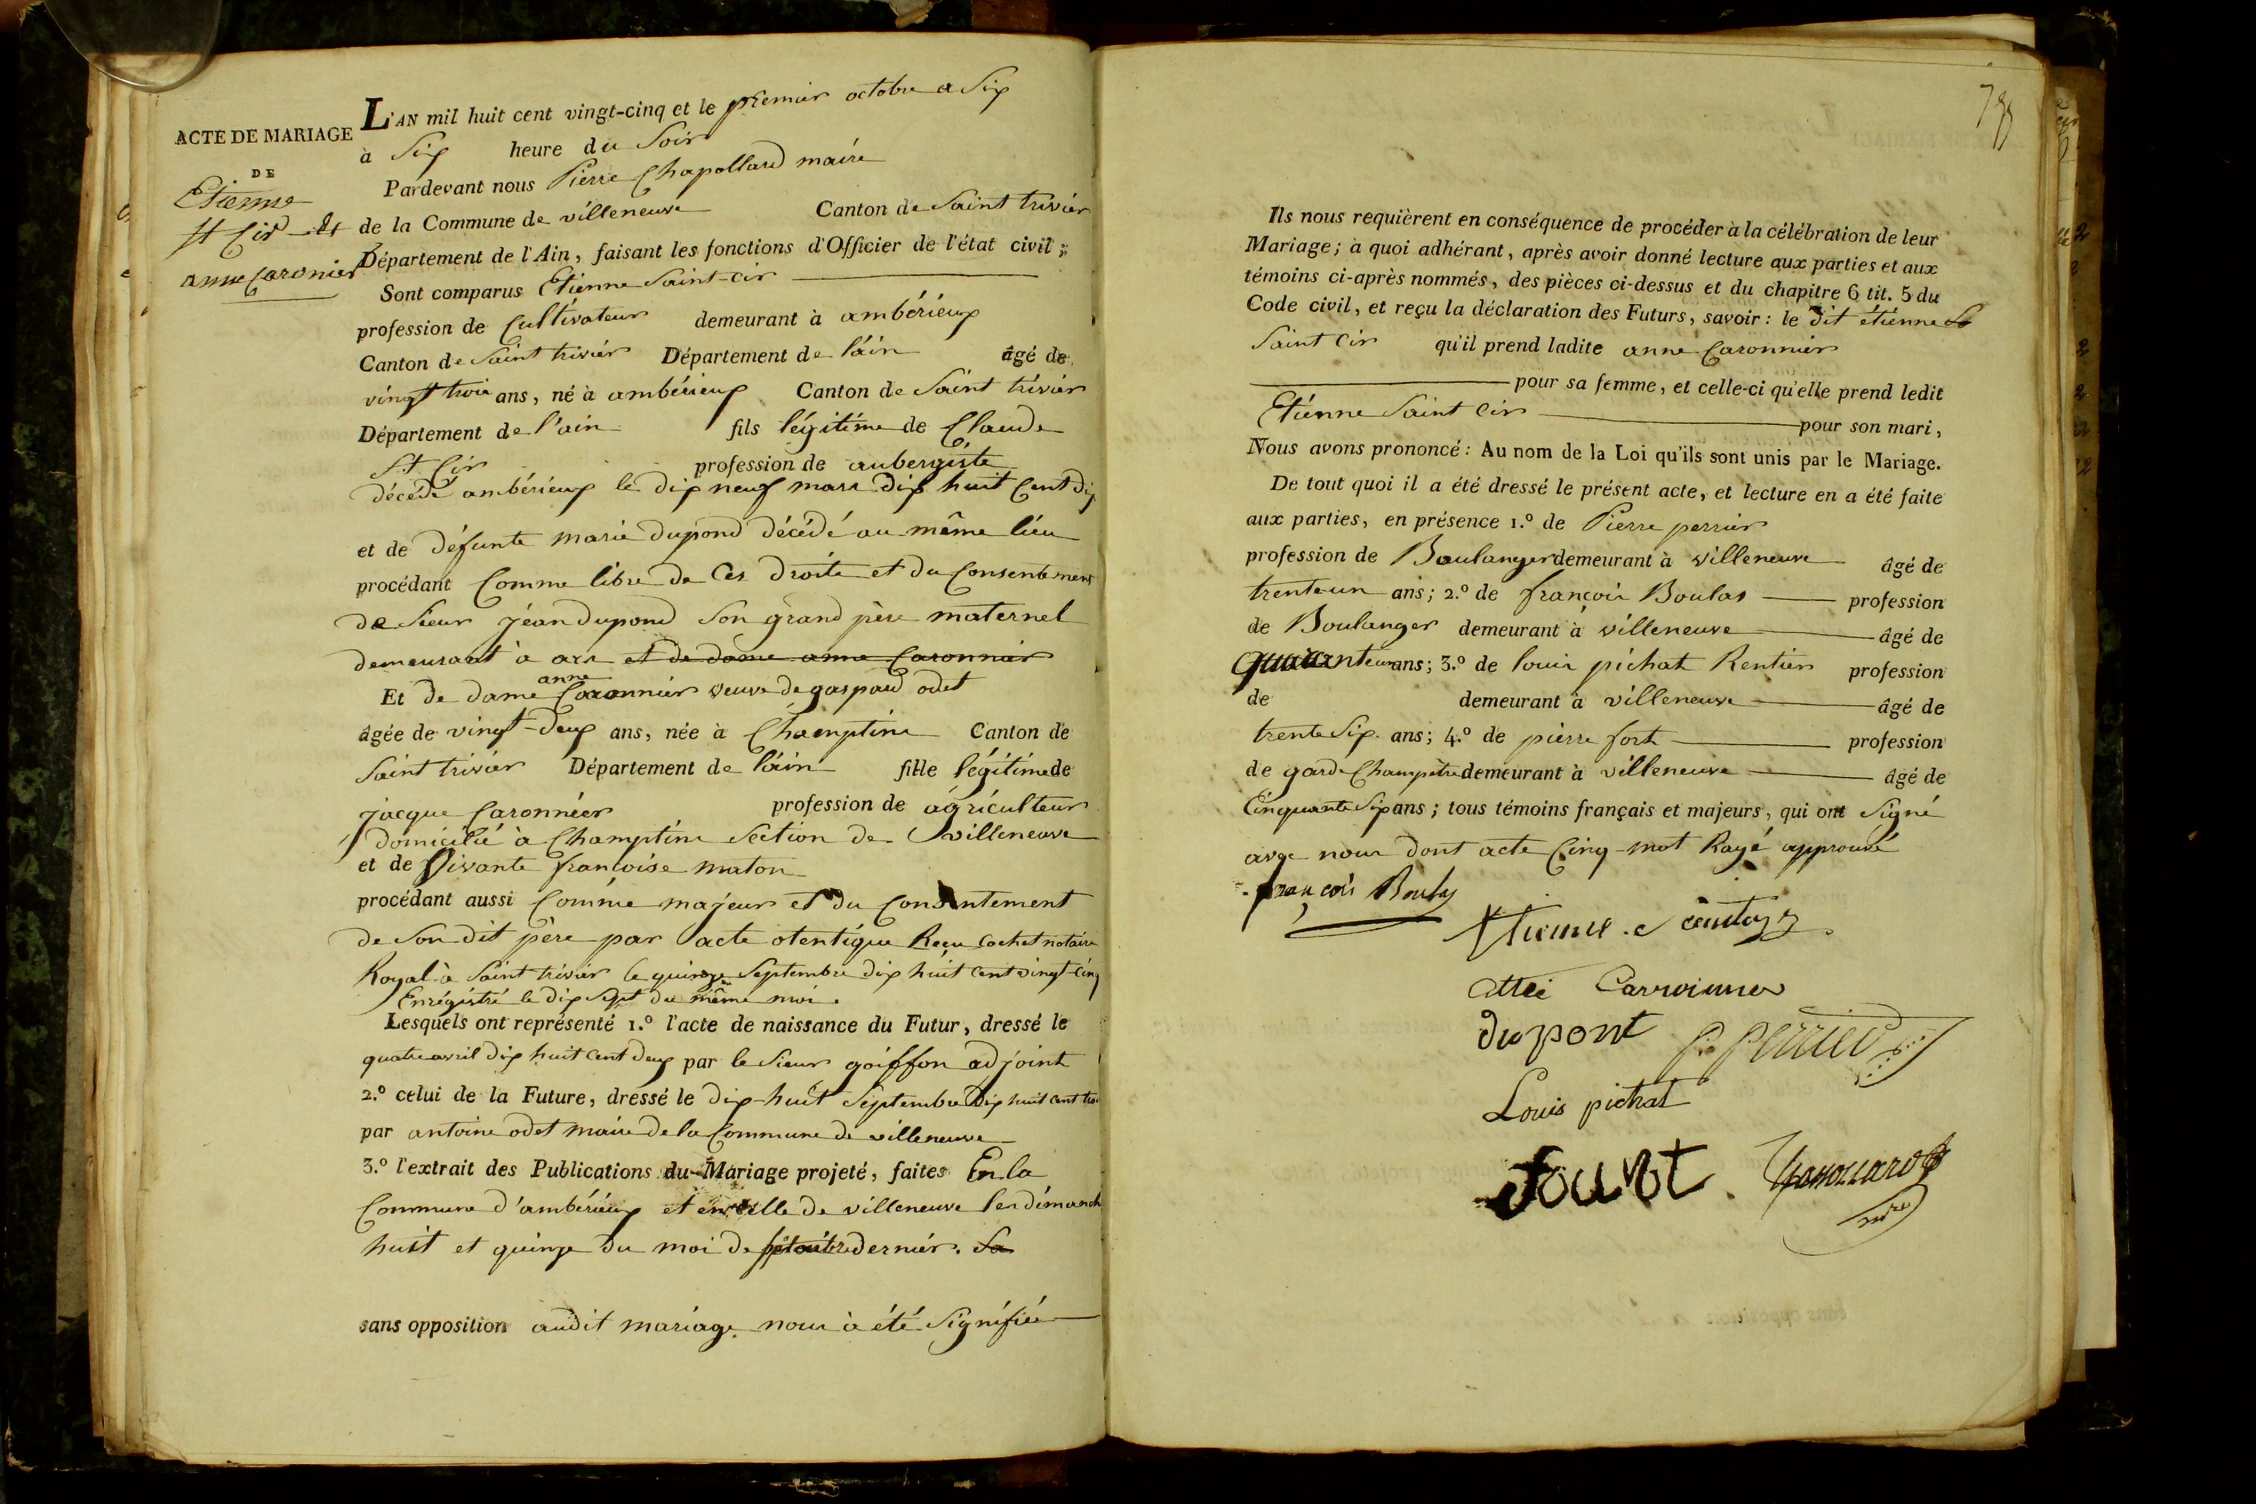 ACTE DE MARIAGE
DE
Etienne
St Cir et
anne Caronier
L'AN mil huit cent vingt-cinq et le premier octobre a Six
à Six heure du Soir
Pardevant nous Pierre Chapollard maire
de la Commune de villeneuve Canton de Saint trivier
Département de l'Ain, faisant les fonctions d'Officier de l'état civil;
Sont comparus Etienne Saint-Cir
profession de Cultivateur demeurant à ambérieux
Canton de Saint trivier Département de l'ain âgé de
vingt trois ans, né à ambérieux Canton de Saint trivier
Département de l'ain fils légitime de Claude
St Cir profession de aubergiste
décédé ambérieux le dix neuf mars dix huit Cent dix
et de défunte marie dupond décédé au même lieu
procédant Comme libre de Ces droits et du Consentement
de Sieur jéan dupond Son grand père maternel
demeurant à ars et de dame anne Caronnier
Et de dame anne Caronnier veuve de gaspard odet
âgée de vingt-deux ans, née à Champtein Canton de
Saint trivier Département de l'ain fille légitime de
jacque Caronnier profession de agriculteur
domicilié à Champtein Section de villeneuve
et de vivante françoise maton
procédant aussi Comme majeur et du Consentement
de Son dit père par acte otentique Reçu Cochet notaire
Royal à Saint trivier le quinze Septembre dix huit cent vingt-cinq
Enrégistré le dix Sept du même moi.
Lesquels ont représenté 1.º l'acte de naissance du Futur, dressé le
quatre avril dix huit cent deux par le Sieur goiffon adjoint
2.º celui de la Future, dressé le dix-huit Septembre dix huit cent trois
par antoine odet maire de la Commune de villeneuve
3.º l'extrait des Publications du Mariage projeté, faites En la
Commune d'ambérieux et en celle de villeneuve les dimanch
huit et quinze du moi de dernier. Sa
sans opposition audit mariage nous à été Signifiée
Ils nous requièrent en conséquence de procéder à la célébration de leur
Mariage; à quoi adhérant, après avoir donné lecture aux parties et aux
témoins ci-après nommés, des pièces ci-dessus et du chapitre 6 tit. 5 du
Code civil, et reçu la déclaration des Futurs, savoir: le dit étienne
Saint Cir qu'il prend ladite anne Caronnier
pour sa femme, et celle-ci qu'elle prend ledit
Etiénne Saint Cir pour son mari,
Nous avons prononcé: Au nom de la Loi qu'ils sont unis par le Mariage.
De tout quoi il a été dressé le présent acte, et lecture en a été faite
aux parties, en présence 1.º de Pierre perrier
profession de Boulanger demeurant à villeneuve âgé de
trenteun ans; 2.º de françois Boulas profession
de Boulanger demeurant à villeneuve âgé de
quaranteun ans; 3.º de louis pichat Rentier profession
de demeurant à villeneuve âgé de
trente Six ans; 4.º de pierre fort profession
de garde Champêtre demeurant à villeneuve âgé de
Cinquante Six ans; tous témoins français et majeurs, qui ont Signé
avec nous dont acte Cinq mot Rayé approuvé
françois
Etienne
dupont P. Perrier
Louis pichat